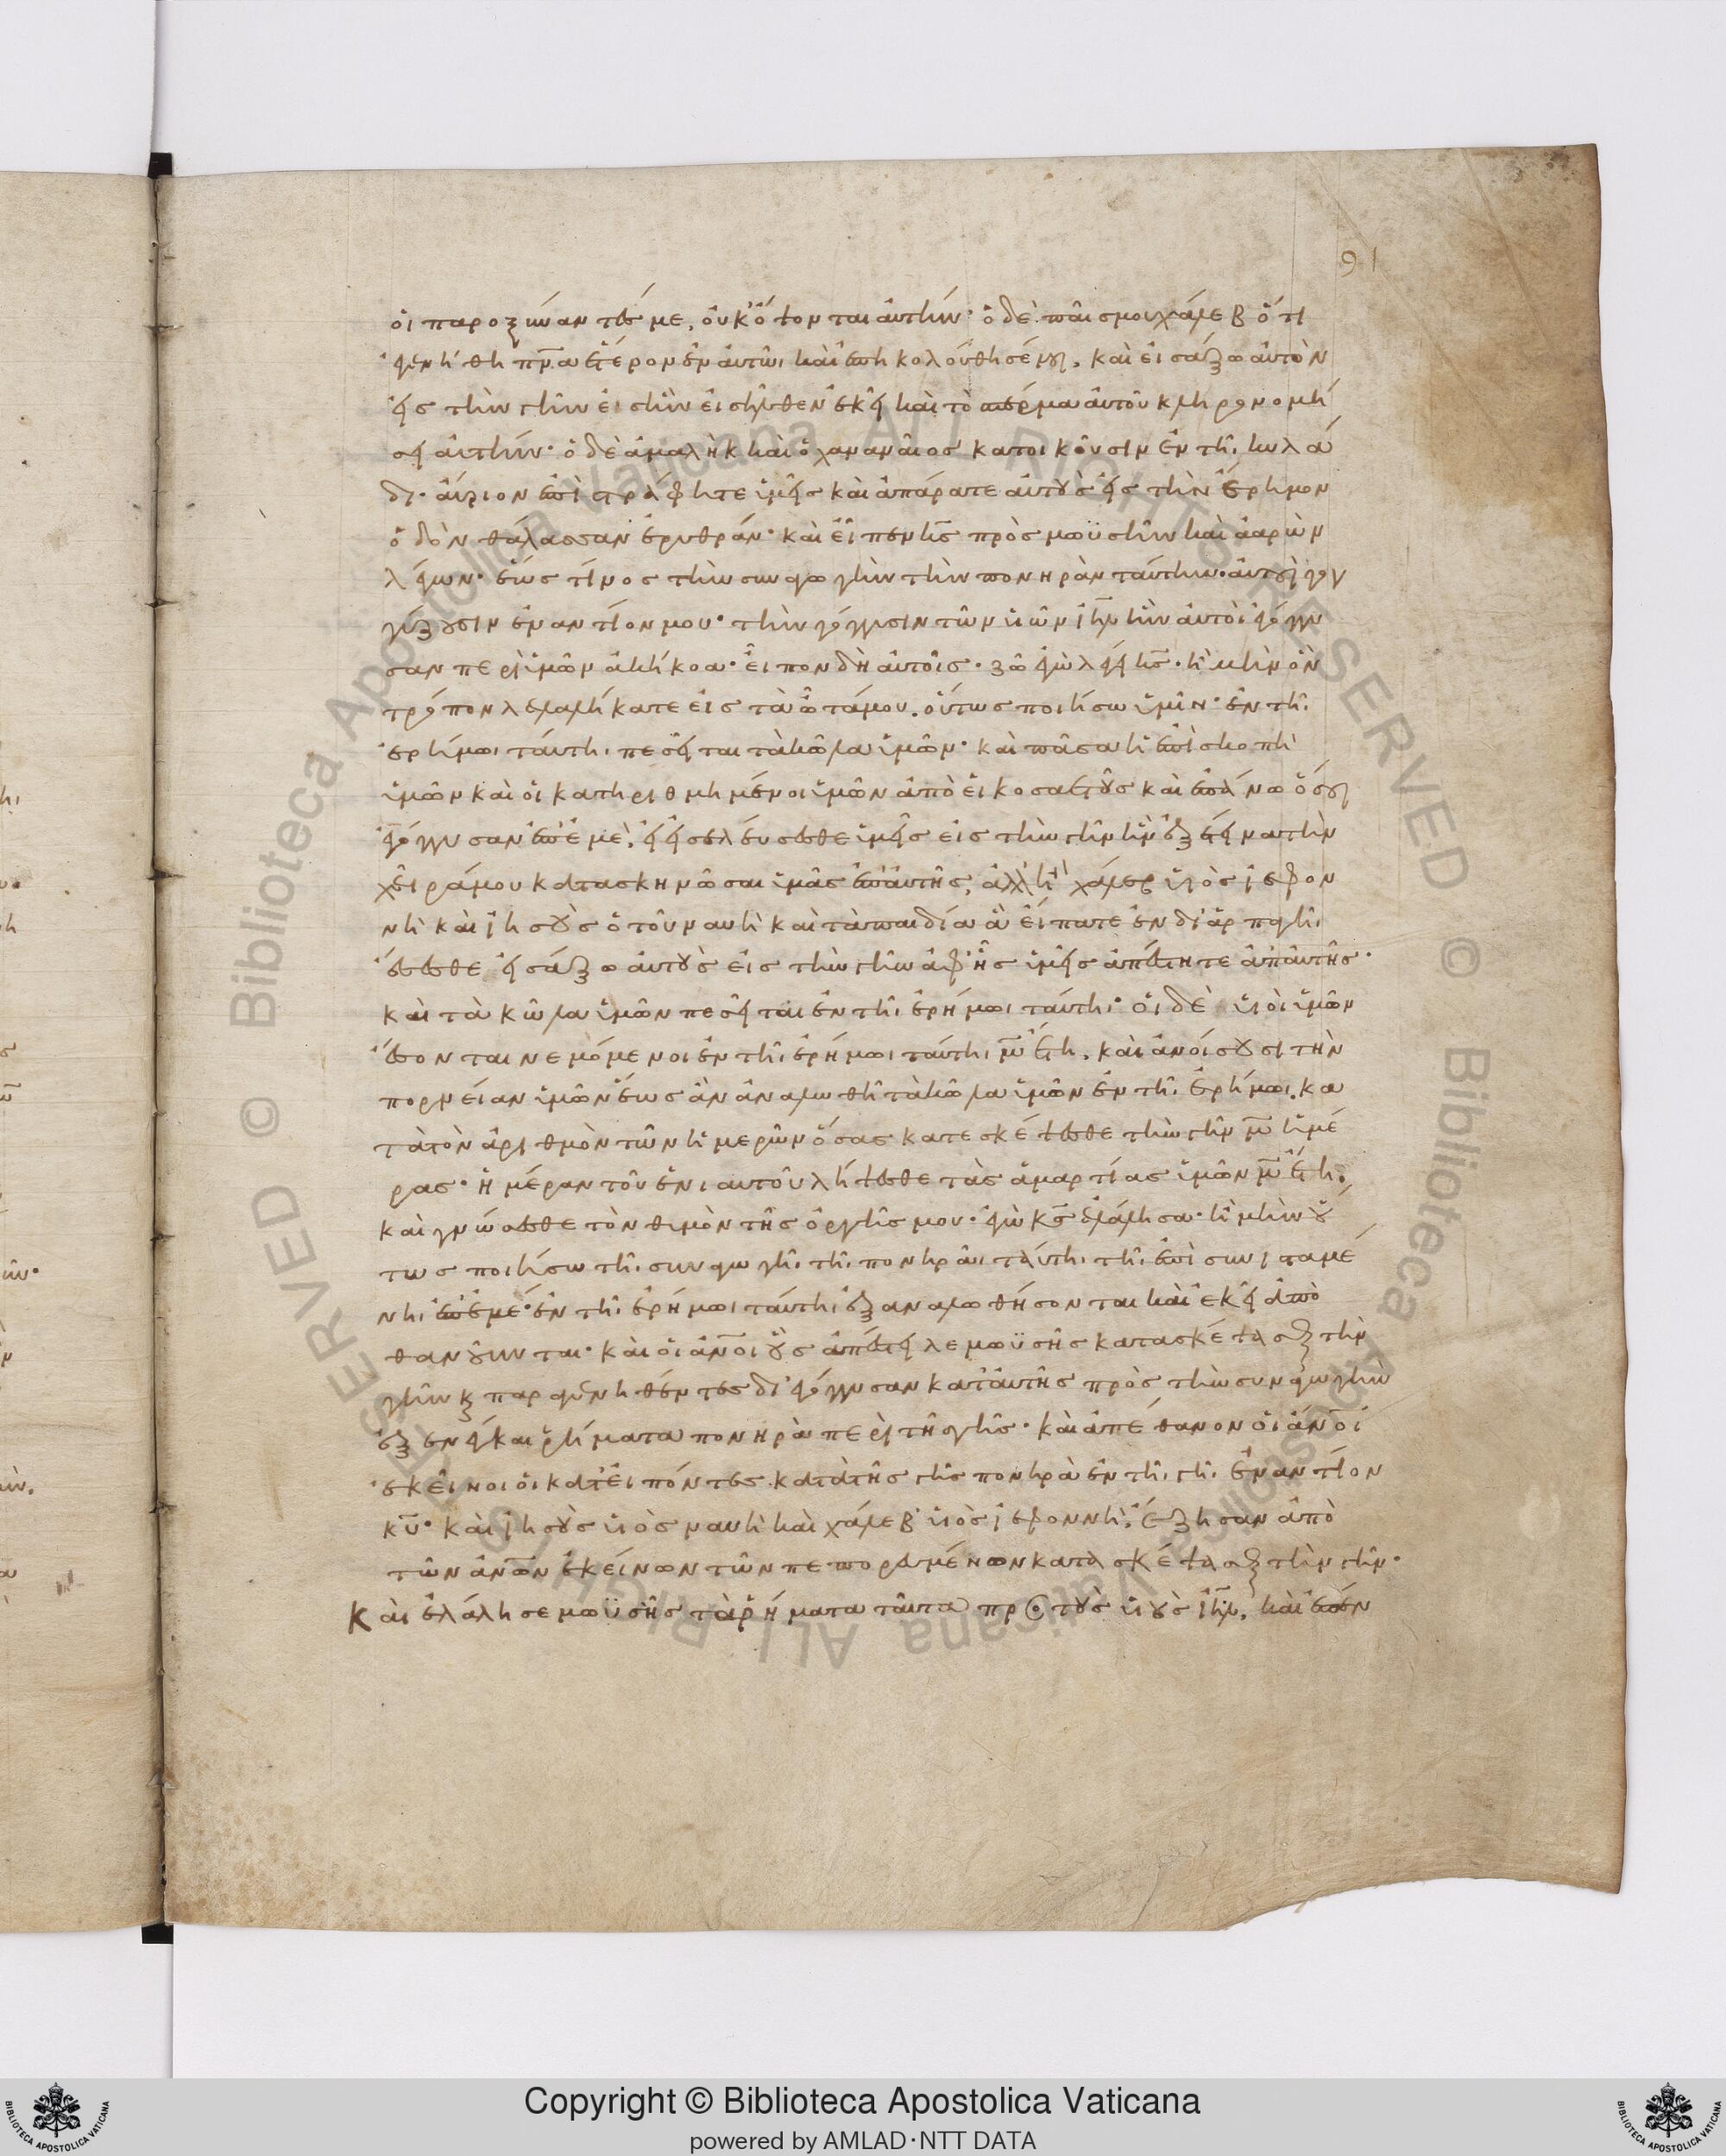 91
οἱ παροξύναντές με, οὐκ ὄψονται αὐτήν· ὁ δὲ παῖς μου χάλεβ ὅτι
ἐγενήθη πν̅α ἕτερον ἐν αὐτῶι καὶ ἐπηκολούθησέ μοι, καὶ εἰσάξω αὐτὸν
εἰς τὴν γῆν εἰς ἣν εἰσῆλθεν ἐκεῖ καὶ τὸ σπέρμα αὐτοῦ κληρονομή
σει αὐτήν· ὁ δὲ ἀμαλὴκ καὶ ὁ χαναναῖος κατοικοῦσιν ἐν τῆι κοιλά
δι· αὔριον ἐπιστράφητε ὑμεῖς καὶ ἀπάρατε αὐτοὺς εἰς τὴν ἔρημον
ὁδὸν θάλασσαν ἐρυθράν· καὶ εἶπεν κ̅ς πρὸς μωϋσῆν καὶ ἀαρὼν
λέγων· ἕως τίνος τὴν συναγωγὴν τὴν πονηρὰν ταύτην· αὐτοὶ γογ
γύζουσιν ἐναντίον μου· τὴν γόγγυσιν τῶν υἱῶν ιη̅λ ἣν αὐτοὶ ἐγόγγυ
σαν περὶ ὑμῶν ἀκήκοα· εἶπον δὴ αὐτοῖς· ζῶ ἐγὼ λέγει κ̅ς· ἦ μὴν ὃν
τρόπον λελαλήκατε εἰς τὰ ὦτά μου. οὕτως ποιήσω ὑμῖν· ἐν τῆι
ἐρήμωι ταύτηι πεσεῖται τὰ κῶλα ὑμῶν· καὶ πᾶσα ἡ ἐπισκοπὴ
ὑμῶν καὶ οἱ κατηριθμημένοι ὑμῶν ἀπὸ εἰκοσαετοῦς καὶ ἐπάνω ὅσοι
ἐγόγγυσαν ἐπ' ἐμέ, εἰ εἰσελεύσεσθε ὑμεῖς εἰς τὴν γῆν ἣν ἐξέτεινα τὴν
χεῖρά μου κατασκηνῶσαι ὑμᾶς ἐπ' αὐτῆς, ἀλλ' ἢ χάλεβ υἱὸς ἰεφον
νὴ καὶ ἰησοῦς ὁ τοῦ ναυὴ καὶ τὰ παιδία ἃ εἴπατε ἐν διαρπαγῆι
ἔσεσθε εἰσάξω αὐτοὺς εἰς τὴν γῆν ἀφ' ἧς ὑμεῖς ἀπέστητε ἀπ' αὐτῆς·
καὶ τὰ κῶλα ὑμῶν πεσεῖται ἐν τῆι ἐρήμωι ταύτηι· οἱ δὲ υἱοὶ ὑμῶν
ἔσονται νεμόμενοι ἐν τῆι ἐρήμωι ταύτηι μ̅ ἔτη. καὶ ἀνοίσουσι τὴν
πορνείαν ὑμῶν ἕως ἂν ἀναλωθῆ τὰ κῶλα ὑμῶν ἐν τῆι ἐρήμωι. κα
τὰ τὸν ἀριθμὸν τῶν ἡμερῶν ὅσας κατεσκέψασθε τὴν γῆν μ̅ ἡμέ
ρας· ἡμέραν τοῦ ἐνιαυτοῦ λήψεσθε τὰς ἁμαρτίας ὑμῶν μ̅ ἔτη.
καὶ γνώσεσθε τὸν θυμὸν τῆς ὀργῆς μου· ἐγὼ κ̅ς ἐλάλησα· ἦ μὴν οὕ
τως ποιήσω τῆι συναγωγῆι τῆι πονηρᾶι ταύτηι τῆι ἐπισυνισταμέ
νηι ἐπ' ἐμέ· ἐν τῆι ἐρήμωι ταύτηι ἐξαναλωθήσονται καὶ ἐκεῖ ἀπο
θανοῦνται· καὶ οἱ ἄν̅οι οὓς ἀπέστειλε μωϋσῆς κατασκέψασθαι τὴν
γῆν καὶ παραγενηθέντες διεγόγγυσαν κατ' αὐτῆς πρὸς τὴν συναγωγὴν
ἐξενέγκαι ῥήματα πονηρὰ περὶ τῆς γῆς· καὶ ἀπέθανον οἱ ἄν̅οι
ἐκεῖνοι οἱ κατείπόντες κατὰ τῆς γῆς πονηρὰ ἐν τῆι γῆι ἐναντίον
κ̅υ· καὶ ἰησοῦς υἱὸς ναυὴ καὶ χάλεβ υἱὸς ἰεφοννὴ, ἔζησαν ἀπὸ
τῶν ἀν̅ων ἐκείνων τῶν πεπορευμένων κατασκέψασθαι τὴν γῆν·
Καὶ ἐλάλησε μωϋσῆς τὰ ῥήματα ταῦτα πρὸς τοὺς υἱοὺς ιη̅λ, καὶ ἐπέν
Copyright © Biblioteca Apostolica Vaticana
powered by AMLAD·NTT DATA